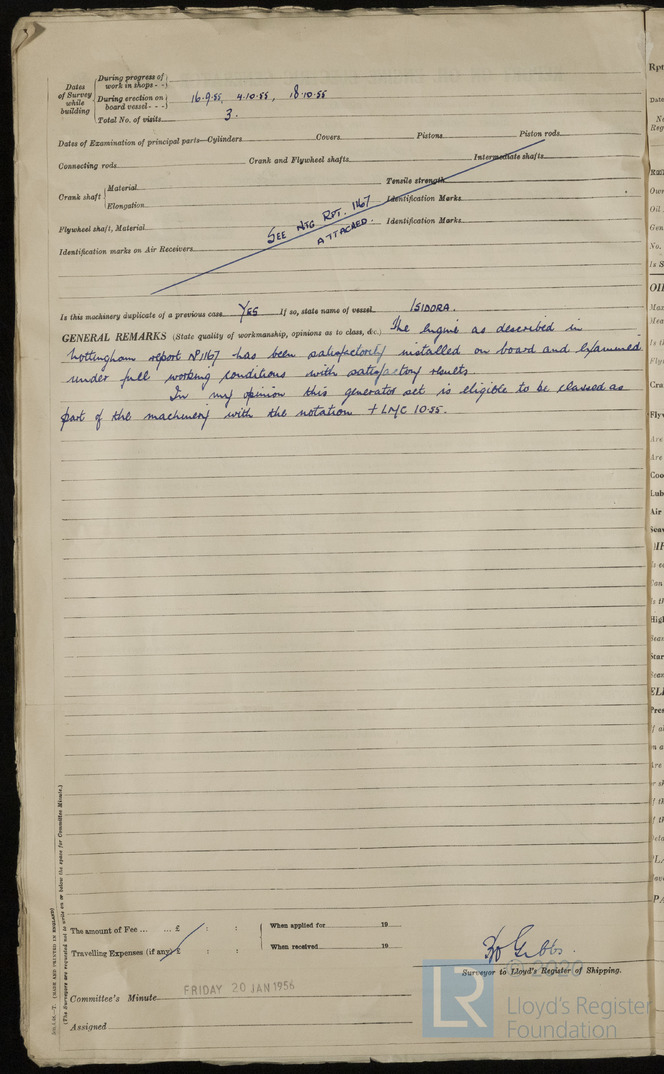 Dates of Survey while building
During progress of work in shops - -
During erection on board vessel - - - 16.9.55, 4.10.55, 18.10.55
Total No. of visits 3.
Dates of Examination of principal parts—Cylinders Covers Pistons Piston rods
Connecting rods Crank and Flywheel shafts Intermediate shafts
Crank shaft Material Tensile strength
Elongation Identification Marks
Flywheel shaft, Material Identification Marks
SEE NTG RPT. 1167
ATTACHED.
Identification marks on Air Receivers
Is this machinery duplicate of a previous case YES If so, state name of vessel ISIDORA.
GENERAL REMARKS (State quality of workmanship, opinions as to class, &c.) The Engine as described in
Nottingham report No 1167 has been satisfactorily installed on board and examined
under full working conditions with satisfactory results.
In my opinion this generator set is eligible to be classed as
part of the machinery with the notation + LMC 10.55.
(The Surveyors are requested not to write on or below the space for Committee Minute.)
(MADE AND PRINTED IN ENGLAND)
The amount of Fee ... ... £ : : When applied for 19
Travelling Expenses (if any) £ : : When received 19
Gibbs.
© 2020
Surveyor to Lloyd's Register of Shipping.
Committee's Minute FRIDAY 20 JAN 1956
Assigned
LR
Lloyd's Register
Foundation